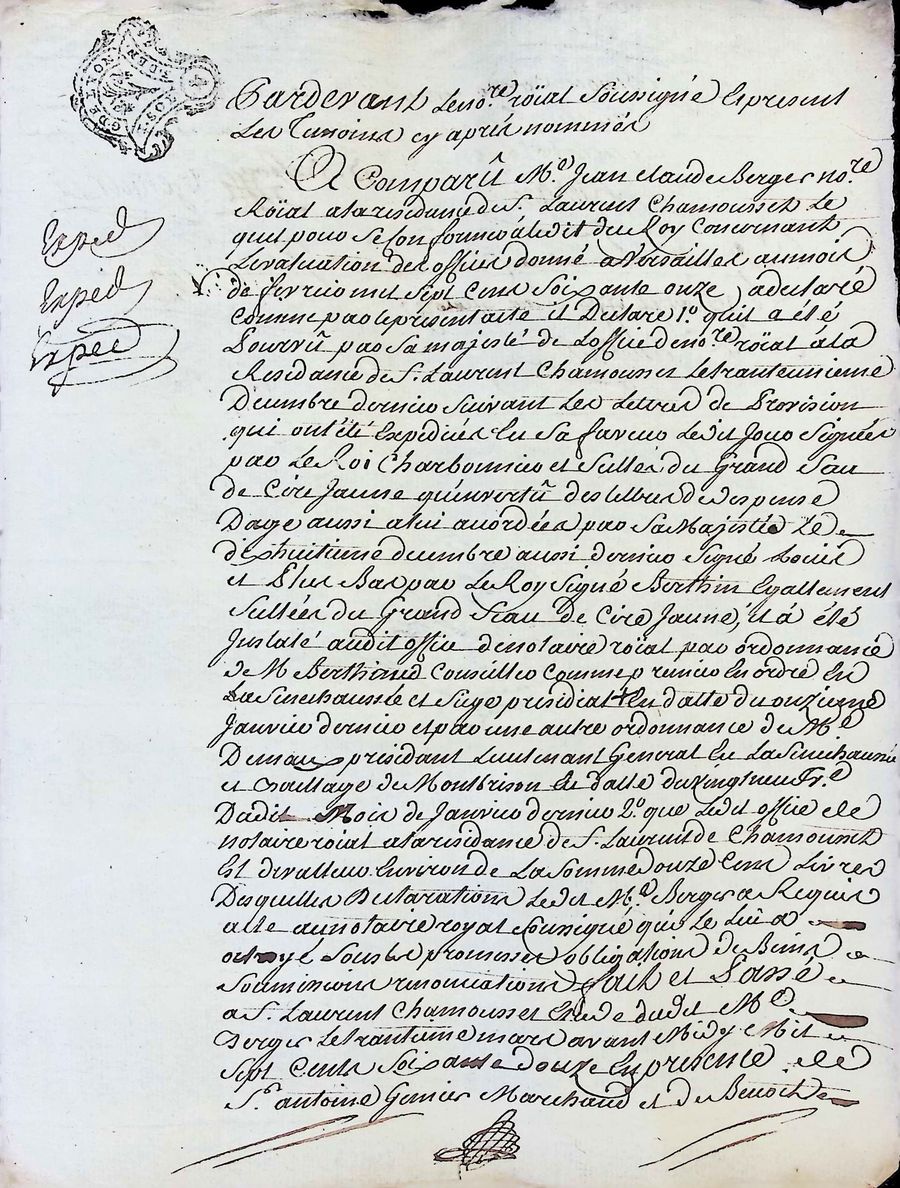 Pardevant le no.re roïal Soussigné Et present
Les Temoins cy aprés nommés
A Comparû M.e Jean Claude Berger no.re
Roïal a la residance de S.t Laurent Chamousset Le
quel pour se Conformer a ledit du Roy Concernant
Levaluation des offices donné a Versailles au mois
de fevrier mil Sept Cent Soixante onze, a declaré
Comme par le present acte il Declare 1.o qu'il a été
Pourvû par Sa majesté de Loffice de no.re roïal a la
Residance de S.t Laurent Chamousset Le trante unieme
Decembre dernier Suivant Les Lettres de Provision
qui ont été Expediées En Sa faveur Ledit Jour Signées
par Le Roi Charbonnier et Sellées du Grand Sau
de Cire Jaune qu'en vertû des lettres de despense
Dage aussi a lui accordées par Sa Majestée Le
dixhuitieme decembre aussi dernier Signé Louis
et Plus Bas par Le Roy Signé Berthin Egallement
Sellées du Grand Seau de Cire Jaune, il a été
Jnstalé audit office de notaire roïal par ordonnance
de M Berthaud Conseiller Comme premier En ordre En
La Senechaussée et Siege présidial En datte du onzieme
Janvier dernier et par une autre ordonnance de M.e
Demeaux présidant Lieutenant General En La Senechaussée
et Baillage de Montbrison En datte du vingt neuf
Dudit Mois de Janvier dernier 2.o que Ledit office de
notaire roïal a la residance de S.t Laurent de Chamousset
Est de valleur Environ de La Somme douze Cent Livres
Desquelles Declarations Ledit M.e Berger a Requis
acte au notaire royal Soussigné que Le Lui a
octroyé Sous les promesses obligations de Biens
Soumissions renonciations fait et Passé
a S.t Laurent Chamousset Etude dudit M.e
Berger Le trantieme mars avant Midy Mil
Sept Cents Soixante douze En presence de
S.r antoine Marchand et de Benoit
Exped
Exped
Exped